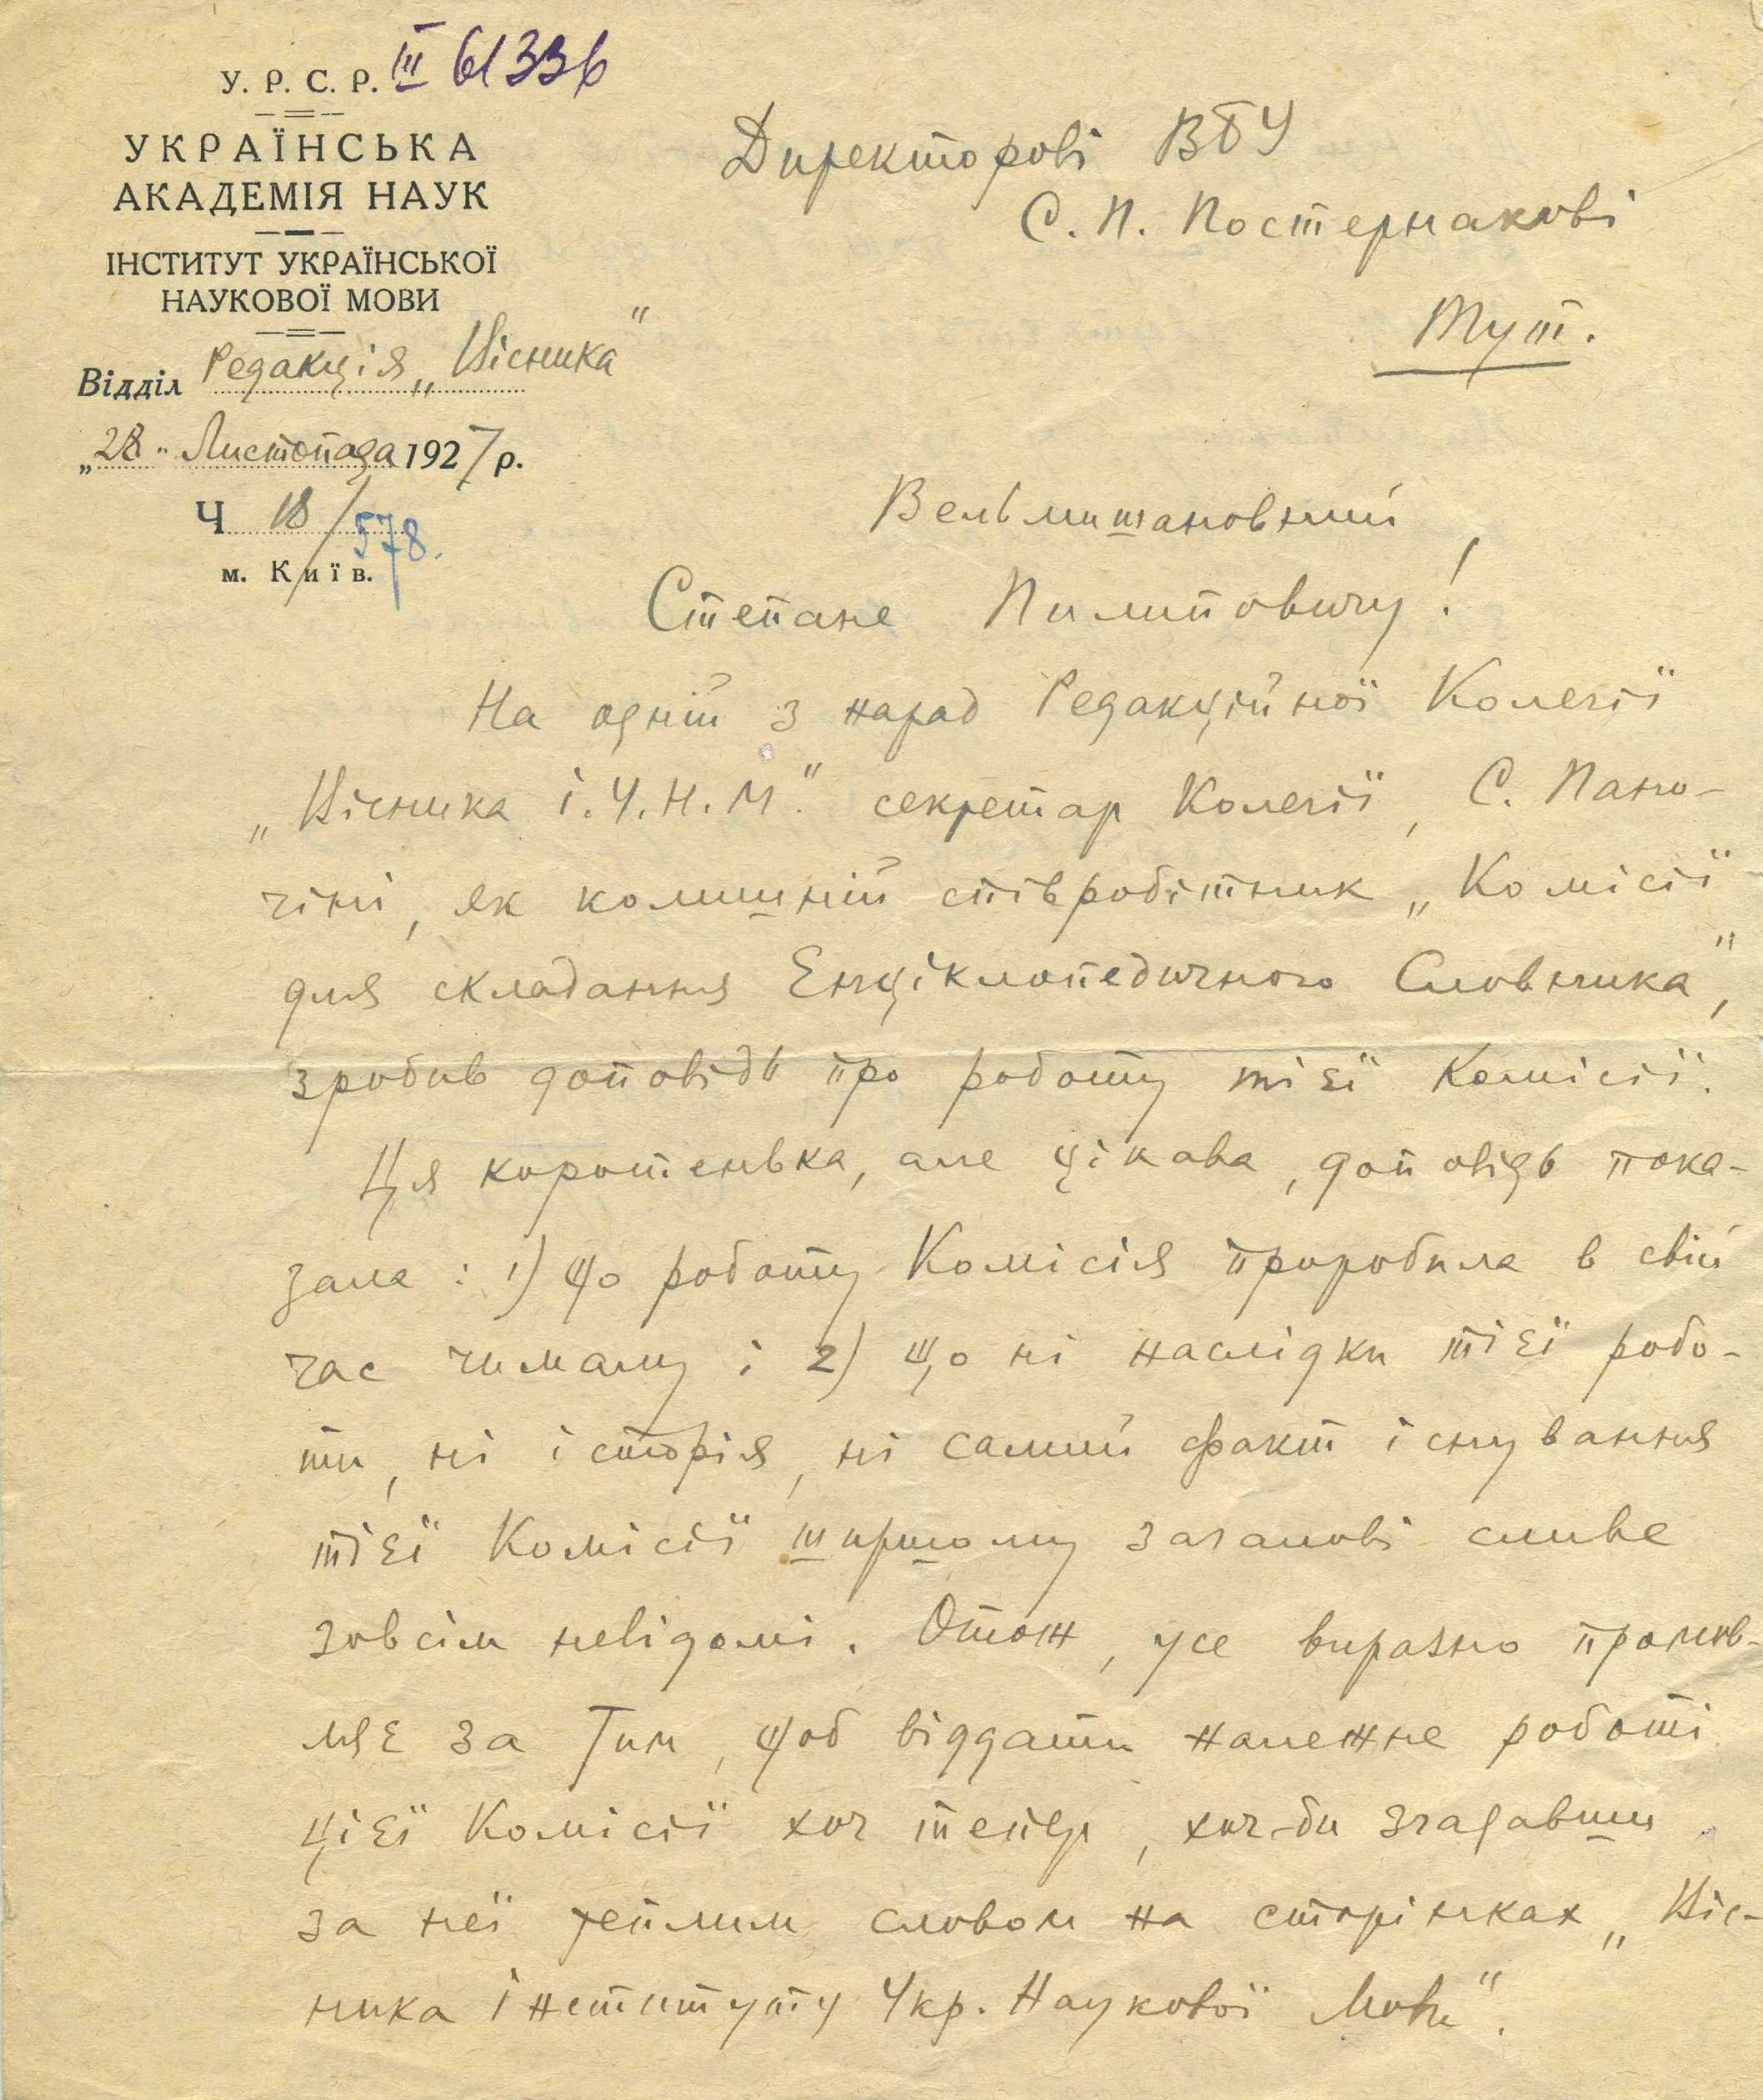 У. Р. С. Р. III 61336
УКРАЇНСЬКА
АКАДЕМІЯ НАУК
ІНСТИТУТ УКРАЇНСЬКОЇ
НАУКОВОЇ МОВИ
Відділ Редакція „Вісника"
„28" Листопада 1927 р.
Ч 18/578.
м. Київ.
Директорові ВБУ
С. П. Постернакові
Тут.
Вельмишановний
Степане Пилиповичу!
На одній з нарад Редакційної Колегії
„Вісника І.У.Н.М." секретар Колегії, С. Паню-
чіні, як колишній співробітник „Комісії
для складання Енціклопедичного Словника",
зробив доповідь про роботу тієї Комісії.
Ця коротенька, але цікава, доповідь пока-
зала: 1) що роботу Комісія проробила в свій
час чималу і 2) що ні наслідки тієї робо-
ти, ні історія, ні самий факт існування
тієї Комісії ширшому загалові сливе
зовсім невідомі. Отож, усе виразно промов-
ляє за тим, щоб віддати належне роботі
цієї Комісії хоч тепер, хоч-би згадавши
за неї теплим словом на сторінках „Віс-
ника Інституту Укр. Наукової Мови".